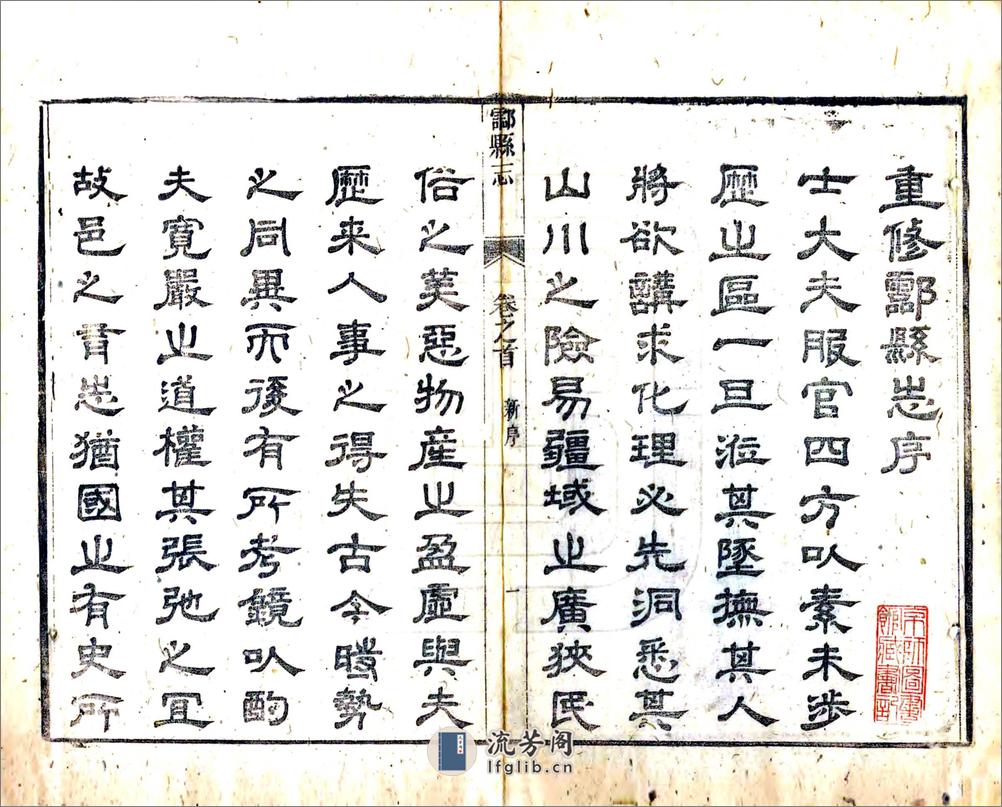 重修酃縣志序
士大夫服官四方以素未涉
歷之區一旦涖其墜撫其人
將欲講求化理必先洞悉其
山川之險易疆域之廣狹民
酃縣志 卷之首 新序 一
俗之美惡物產之盈虛與夫
歷来人事之得失古今時勢
之同異而後有所考鏡以酌
夫寬嚴之道權其張弛之宜
故邑之有志猶國之有史所
流芳阁
lfglib.cn